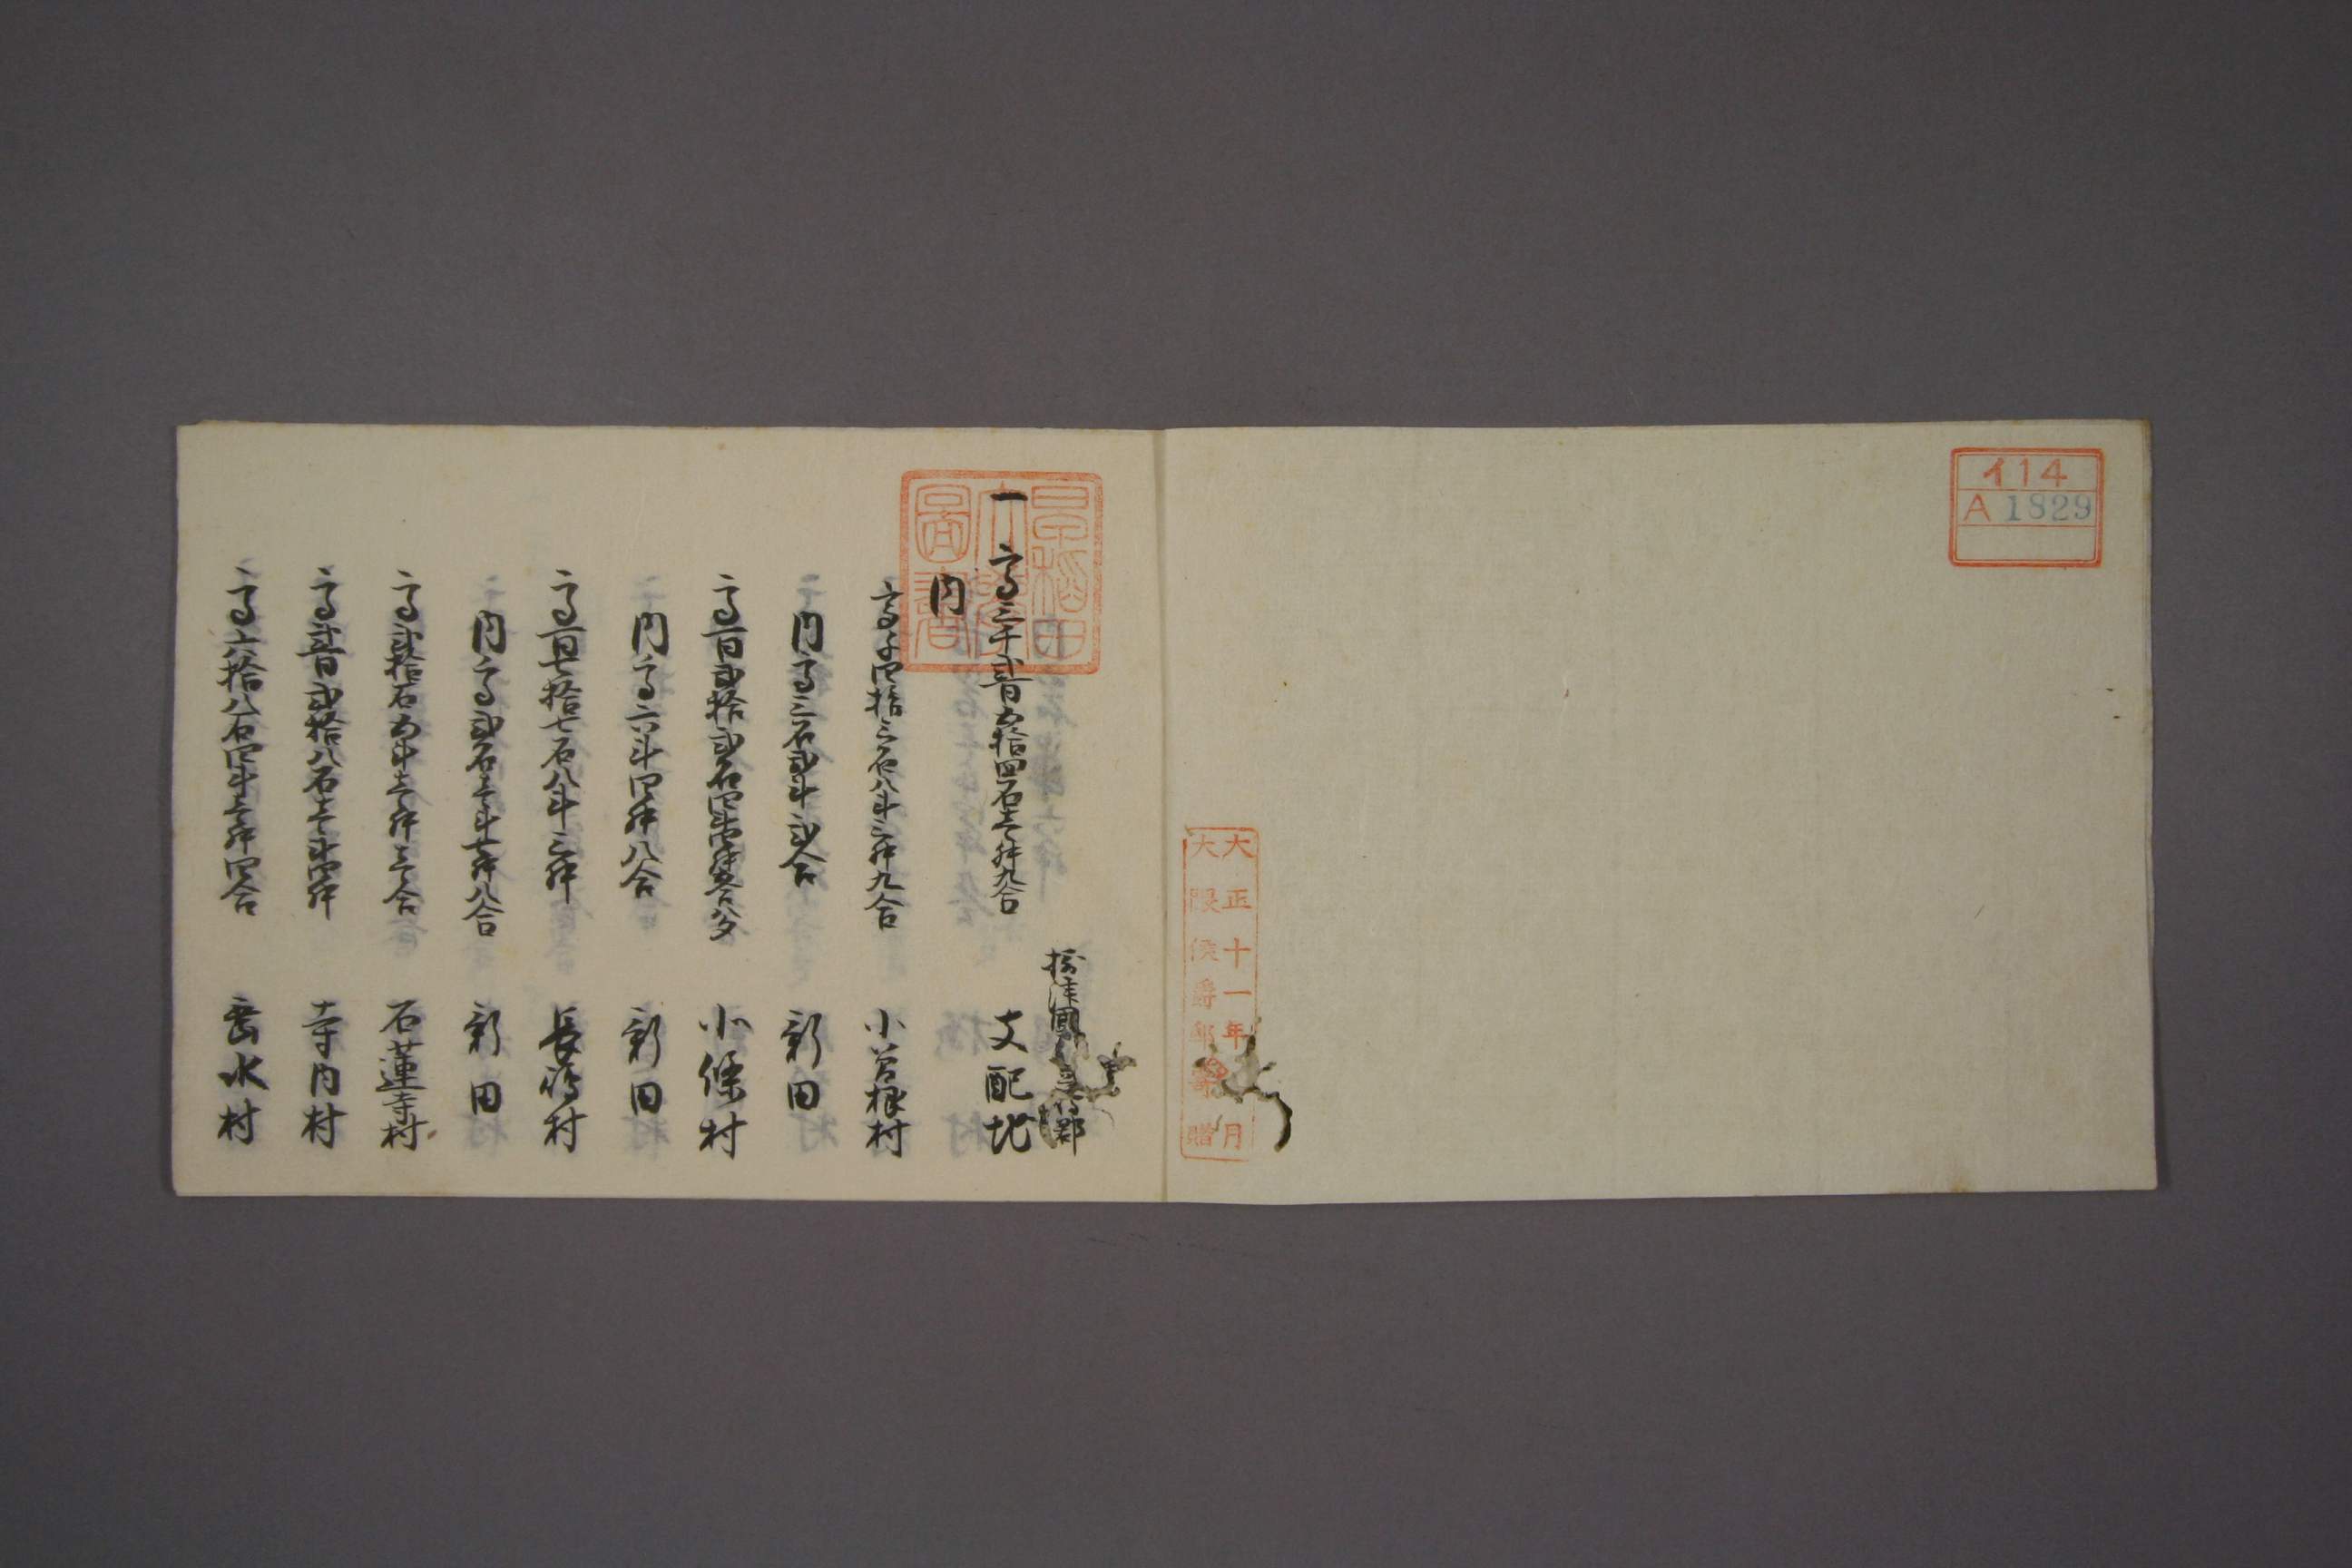 イ14
A 1829
大正十一年 月
大隈侯爵邸寄贈
早稲田
大學
圖書
摂津國 嶋郡
一 高三千弐百五拾四石壱升九合 支配地
内
高千四拾三石八斗三升九合 小曽根村
内高三石弐斗弐合 新田
高百弐拾弐石四斗四升 合八夕 北條村
内高六斗四升八合 新田
高百七拾七石八斗三升 長嶋村
内高弐石壱斗七升八合 新田
高弐拾石五斗壱升壱合 石蓮寺村
高弐百弐拾八石壱斗四升 寺内村
高六拾八石四斗壱升四合 垂水村